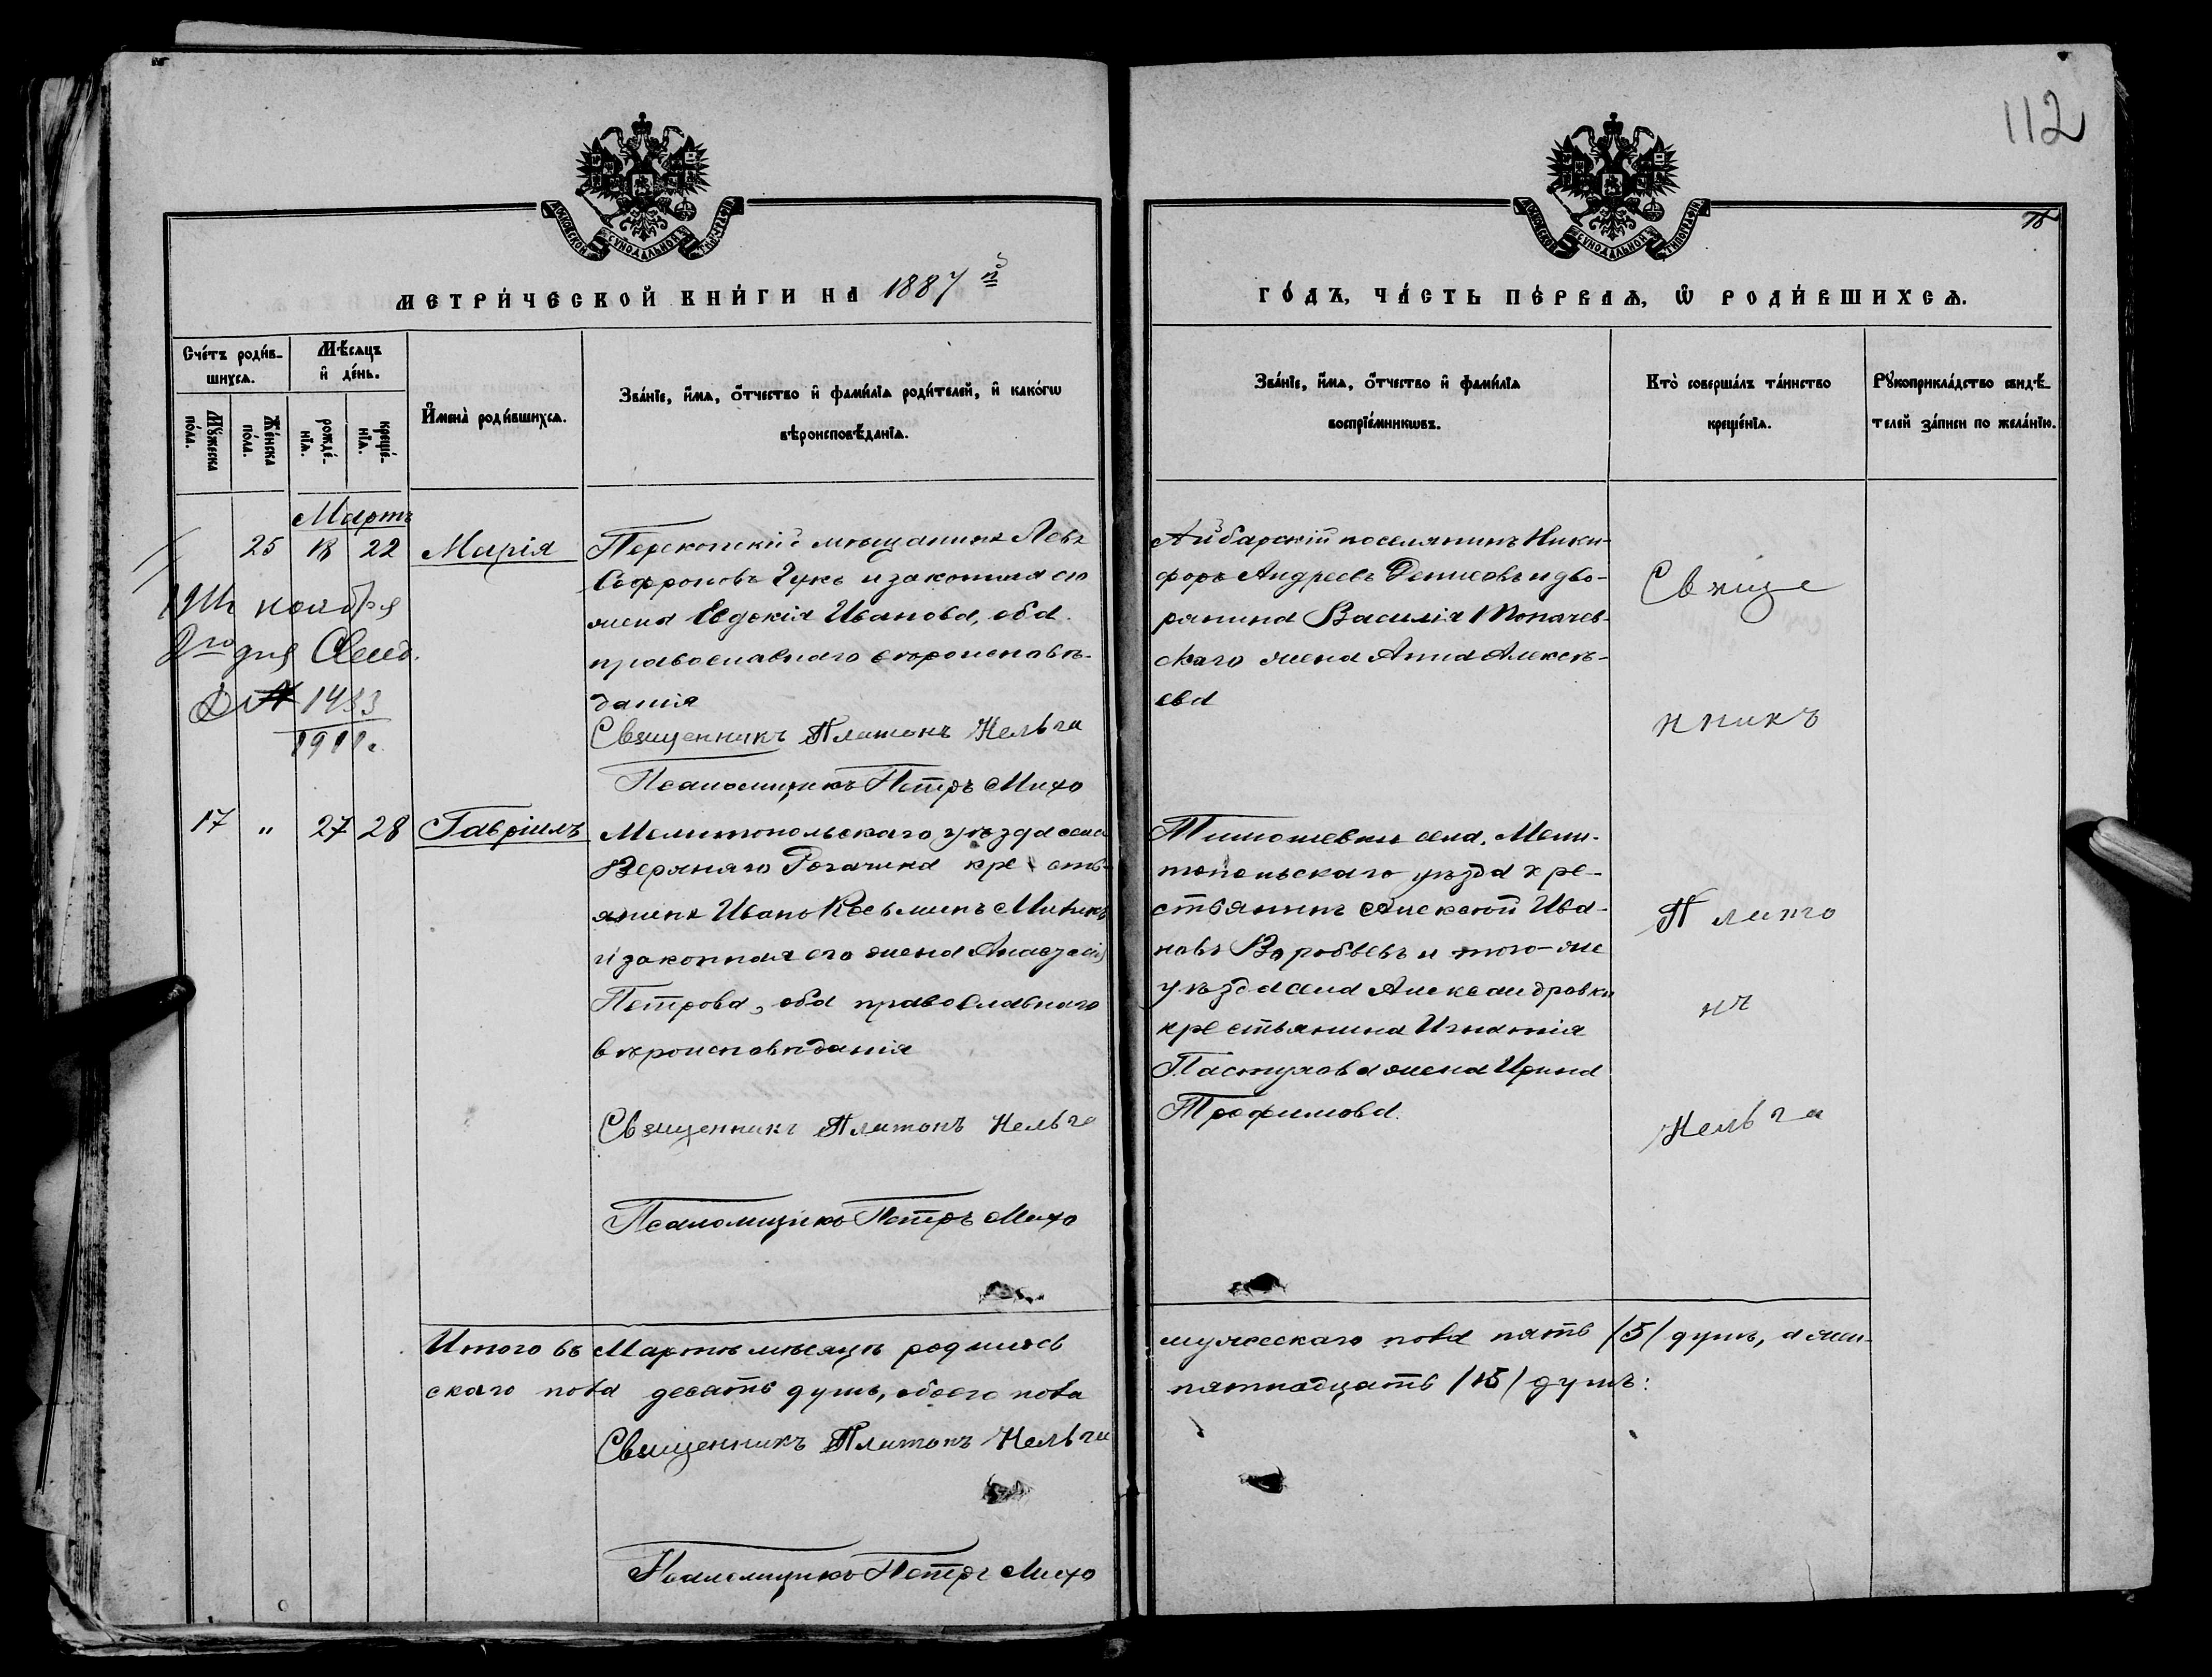 112
МОСКОВСКОЙ СѴНОДАЛЬНОЙ ТИПОГРАФІИ
МОСКОВСКОЙ СѴНОДАЛЬНОЙ ТИПОГРАФІИ
МЕТРИ́ЧЕСКОЙ КНИ́ГИ НА 1887 й
ГО́ДЪ, ЧА́СТЬ ПЕ́РВАѦ, Ѿ РОДИ́ВШИХСѦ.
Сче́тъ роди́в-
шихсѧ.
Мꙋ́жеска
по́ла.
Же́нска
по́ла.
Мѣ́сѧцъ
и҆ де́нь.
рожде́-
нїѧ.
креще́-
нїѧ.
И҆мена̀ роди́вшихсѧ.
Зва́нїе, и҆́мѧ, ѻ҆́тчество и҆ фами́лїѧ роди́телей, и҆ како́гѡ
вѣроисповѣ́данїѧ.
Зва́нїе, и҆́мѧ, ѻ҆́тчество и҆ фами́лїѧ
воспрїе́мникѡвъ.
Кто̀ соверша́лъ та́инство
креще́нїѧ.
Рꙋкоприкла́дство свидѣ́-
телей за́писи по жела́нїю.
Мартъ
25 18 22 Марія
Перекопскій мѣщанинъ Левъ
Софроновъ Гукъ и законная его
жена Евдокія Иванова, оба
православнаго вѣроисповѣ-
данія
Священникъ Платонъ Нельга
Псаломщикъ Петръ Михо
ноября
2го дня
№ 1433
1911 г.
Айбарскій поселянинъ Ники-
форъ Андреевъ Денисовъ и дво-
рянина Василія
жена Анна Алексѣ-
ева
Свяще
нникъ
17 " 27 28 Гавріилъ
Мелитопольскаго уѣзда села
Верхняго Рогачика кресть-
янинъ Иванъ Косьминъ
и законная его жена Анастасія
Петрова, оба православнаго
вѣроисповѣданія
Священникъ Платонъ Нельга
Псаломщикъ Петръ Михо
Тимошевки села, Мели-
топольскаго уѣзда кре-
стьянинъ Алексѣй Ива-
новъ Воробьевъ и того-же
уѣзда села Александровки
крестьянина Игнатія
Пастухова жена Ирина
Трофимова.
Плато
нъ
Нельга
Итого въ Мартѣ мѣсяцѣ родилось
мужескаго пола пять /5/ душъ, а жен-
скаго пола десять душъ, обоего пола
пятнадцать /15/ душъ:
Священникъ Платонъ Нельга
Псаломщикъ Петръ Михо